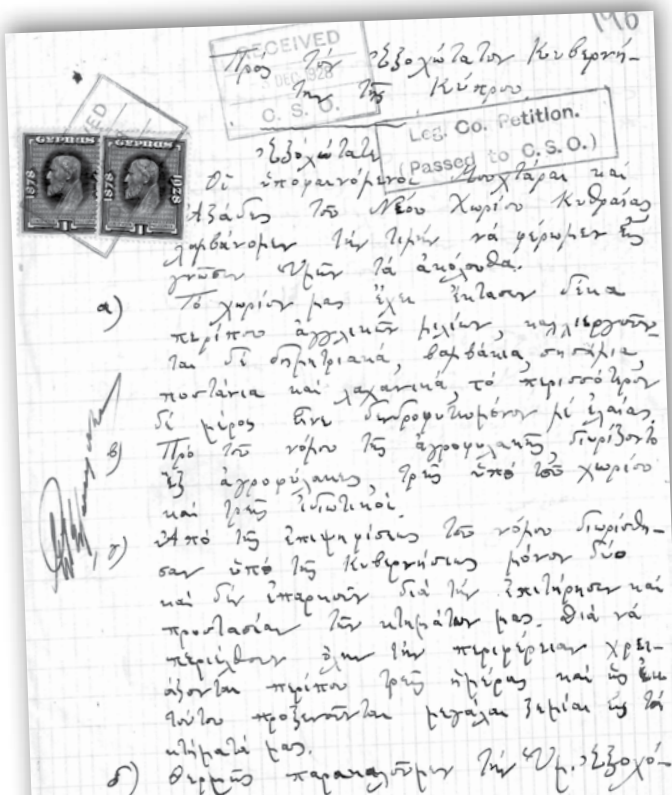 196
RECEIVED
DEC 1928
C. S. O.
Πρὸς Τὸν Ἐξοχώτατον Κυβερνή-
την τῆς Κύπρου
Leg. Co. Petition.
(Passed to C. S. O.)
Ἐξοχώτατε
CYPRUS CYPRUS
1878 1878 1928
1 1
Οἱ ὑποφαινόμενοι Μουχτάραι καὶ
Ἀζάδες τοῦ Νέου Χωρίου Κυθραίας
λαμβάνομεν τὴν τιμὴν νὰ φέρωμεν εἰς
γνῶσιν Ὑμῶν τὰ ἀκόλουθα.
α) Τὸ χωρίον μας ἔχει ἔκτασιν δέκα
περίπου ἀγγλικῶν μιλίων, καλλιεργοῦν-
ται δὲ δημητριακά, βαμβάκια, σησάμια,
ποστάνια καὶ λαχανικά, τὸ περισσότερον
δὲ μέρος εἶνε δενδροφυτωμένον μὲ ἐλαίας.
β) Πρὸ τοῦ νόμου τῆς ἀγροφυλακῆς διωρίζοντο
ἓξ ἀγροφύλακες, τρεῖς ὑπὸ τοῦ χωρίου
καὶ τρεῖς ἰδιωτικοί.
γ) Ἀπὸ τῆς ἐπιψηφίσεως τοῦ νόμου διωρίσθη-
σαν ὑπὸ τῆς Κυβερνήσεως μόνον δύο
καὶ δὲν ἐπαρκοῦν διὰ τὴν ἐπιτήρησιν καὶ
προστασίαν τῶν κτημάτων μας. Διὰ νὰ
περιέλθουν ὅλην τὴν περιφέρειαν χρει-
άζονται περίπου τρεῖς ἡμέρας καὶ ὡς ἐκ
τούτου προξενοῦνται μεγάλαι ζημίαι εἰς τὰ
κτήματά μας.
δ) Θερμῶς παρακαλοῦμεν τὴν Ὑμ. Ἐξοχό-